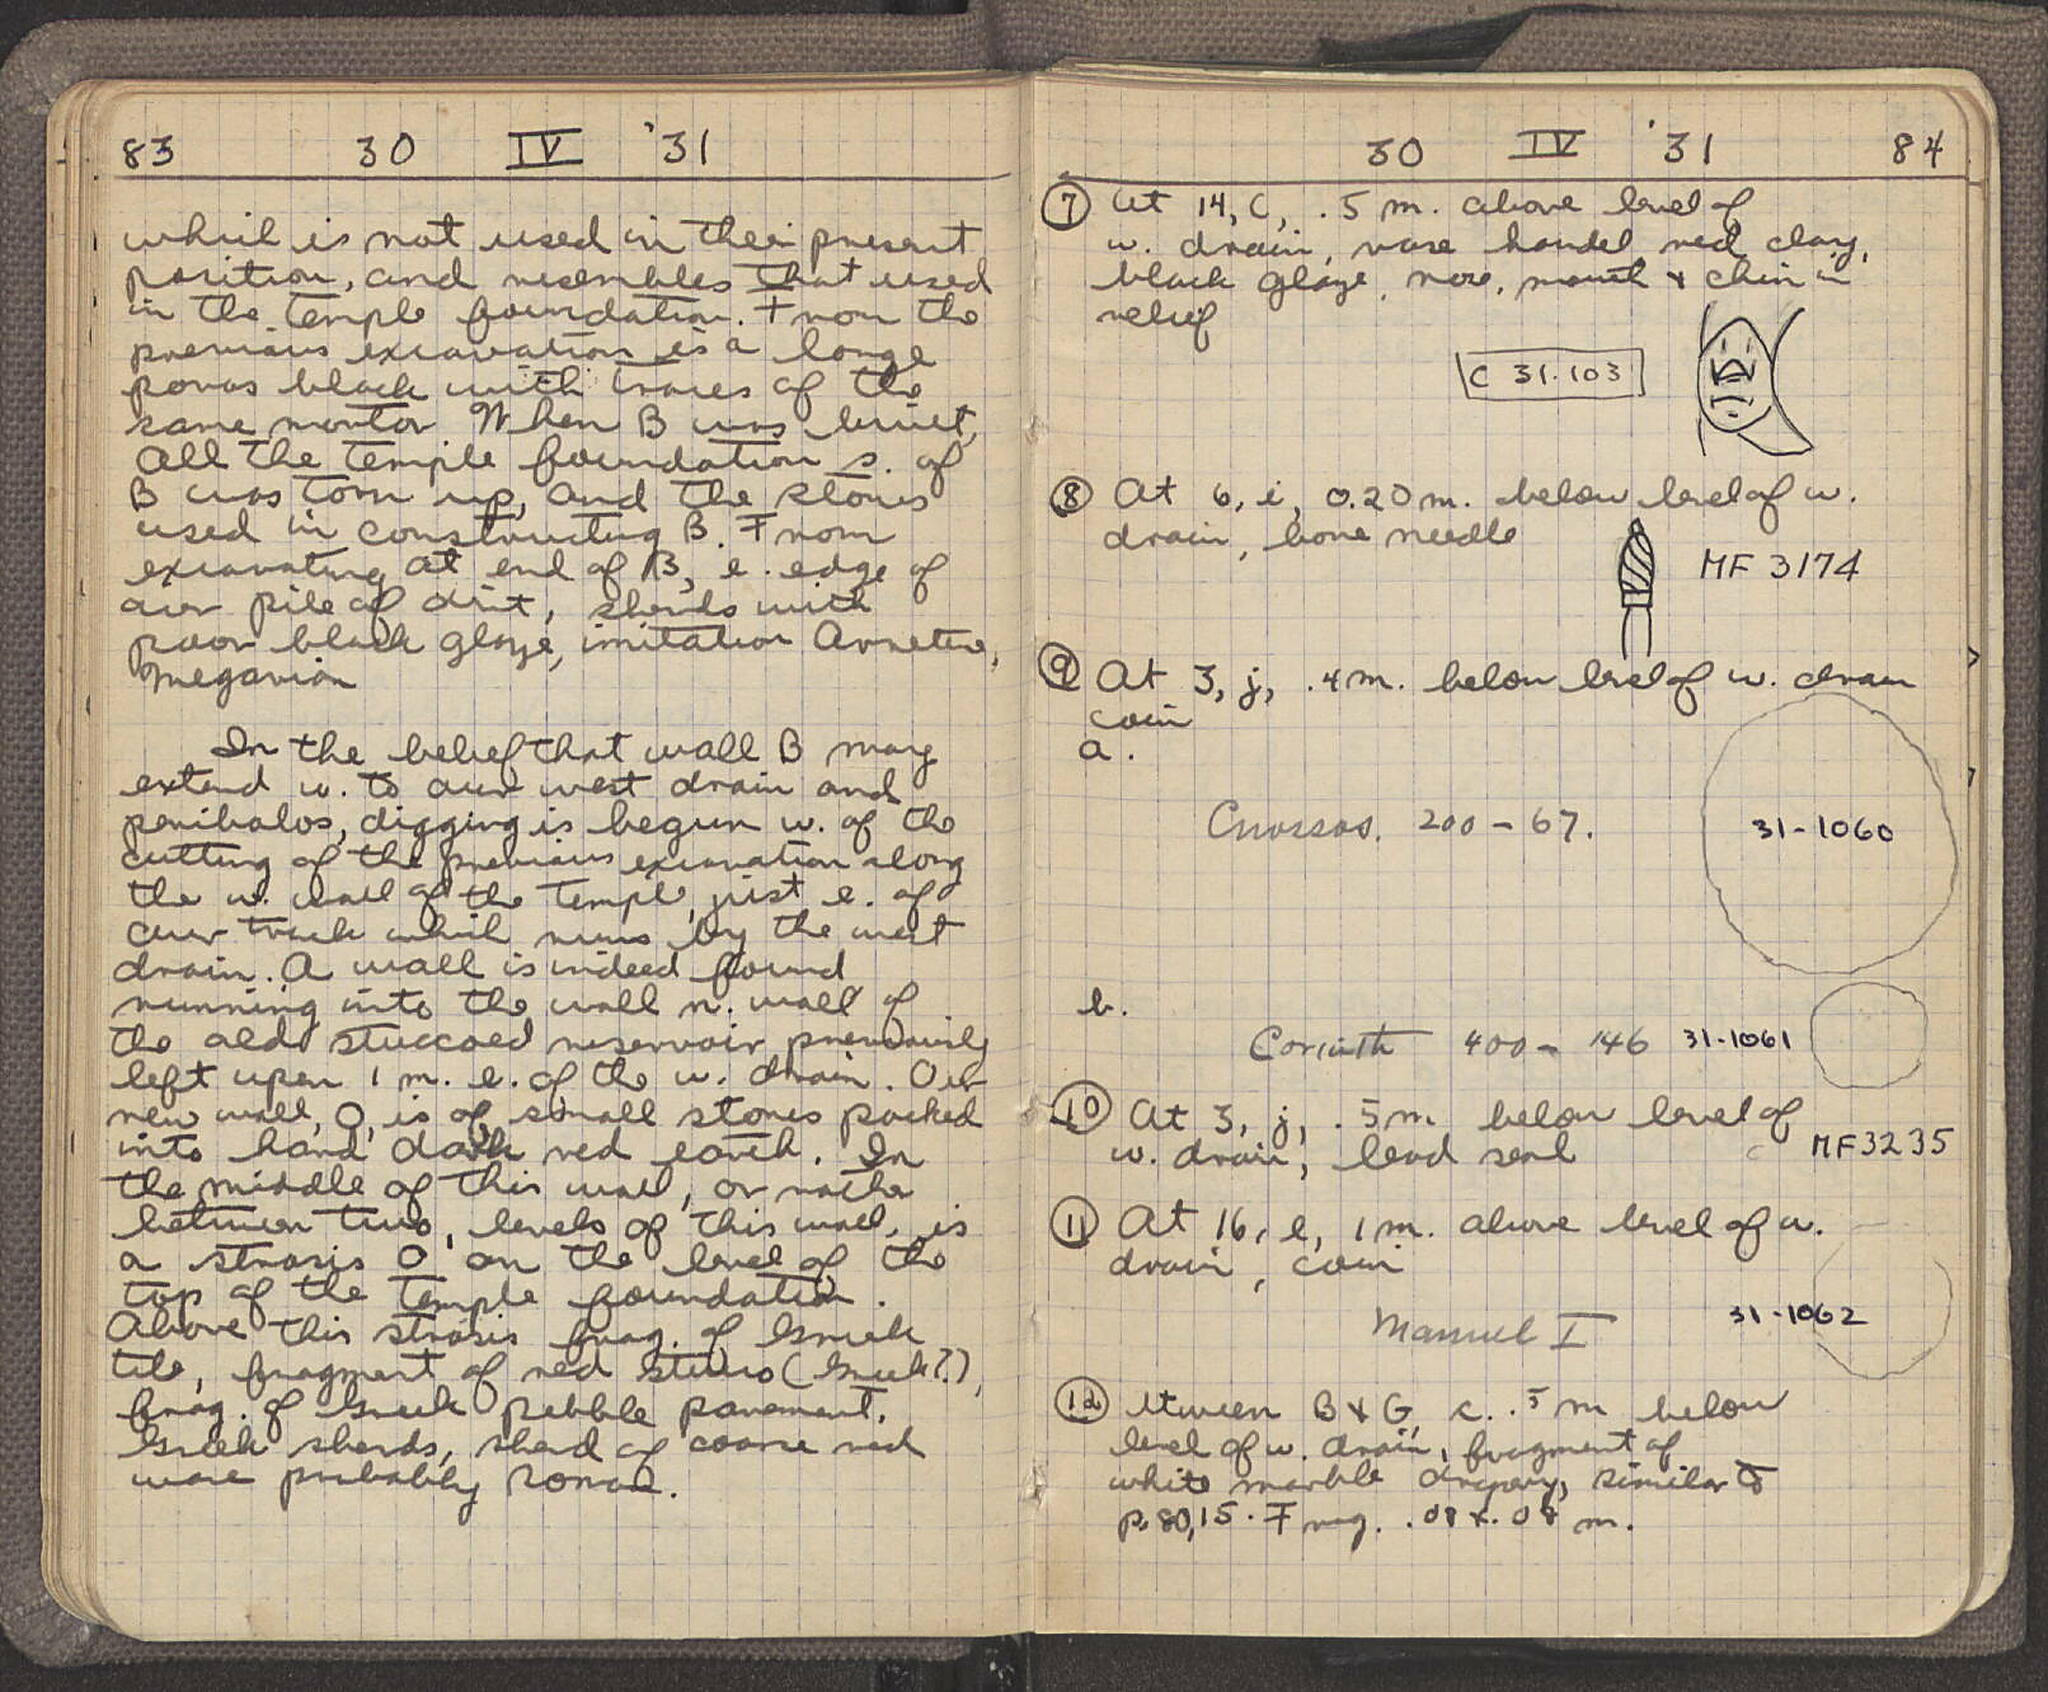 83 30 IV '31
which is not used in their present
position, and resembles that used
in the temple foundation. From the
previous excavation is a large
poros block with traces of the
same mortar. When B was built,
all the temple foundation s. of
B was torn up, and the stones
used in constructing B. From
excavating at end of B, e. edge of
our pile of dirt, sherds with
poor black glaze, imitation Arretine,
Megarian
In the belief that wall B may
extend w. to our west drain and
peribolos, digging is begun w. of the
cutting of the previous excavation along
the w. wall of the temple, just e. of
our track which runs by the west
drain. A wall is indeed found
running into the wall n. wall of
the old stuccoed reservoir previously
left upon 1 m. e. of the w. drain. Our
new wall, O, is of small stones packed
into hard dark red earth. In
the middle of this wall, or rather
between two levels of this wall, is
a strosis O on the level of the
top of the temple foundation.
Above this strosis frag. of Greek
tile, fragment of red stucco (Greek?),
frag. of Greek pebble pavement.
Greek sherds, sherd of coarse red
ware probably Roman.
30 IV '31 84
7 At 14, C, .5 m. above level of
w. drain, vase handel red clay,
black glaze, nose, mouth & chin in
relief
C 31.103
8 At 6, i, 0.20 m. below level of w.
drain, bone needle
MF 3174
9 At 3, j, .4 m. below level of w. drain
coin
a.
Cnossos. 200-67.
31-1060
b.
Corinth 400-146 31-1061
10 At 3, j, .5 m. below level of
w. drain, lead seal
MF3235
11 At 16, e, 1 m. above level of w.
drain, coin
Manuel I 31-1062
12 etween B & G, c. .5 m below
level of w. drain, fragment of
white marble drapery, similar to
p. 80,15. Frag. .08 x .08 m.